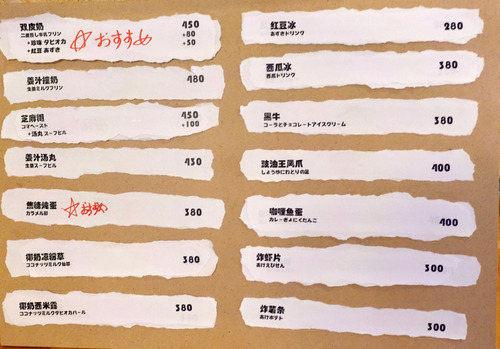 双皮奶 450
二層蒸し牛乳プリン +80
+珍珠 タピオカ +50
+紅豆 あずき
☆おすすめ
姜汁撞奶 480
生姜ミルクプリン
芝麻糊 450
ゴマペースト +100
+汤丸 スーフヒル
姜汁汤丸 430
生姜スーフヒル
焦糖炖蛋 380
カラメル卵
☆おすすめ
椰奶凉粉草 380
ココナッツミルク仙草
椰奶西米露 380
ココナッツミルクタピオカパール
红豆冰 280
あずきドリンク
西瓜冰 380
西瓜ドリンク
黑牛 380
コーラとチョコレートアイスクリーム
豉油王凤爪 400
しょうゆにわとりの足
咖喱鱼蛋 400
カレーぎょにくだんこ
炸虾片 300
あげえびせん
炸薯条 300
あげポテト